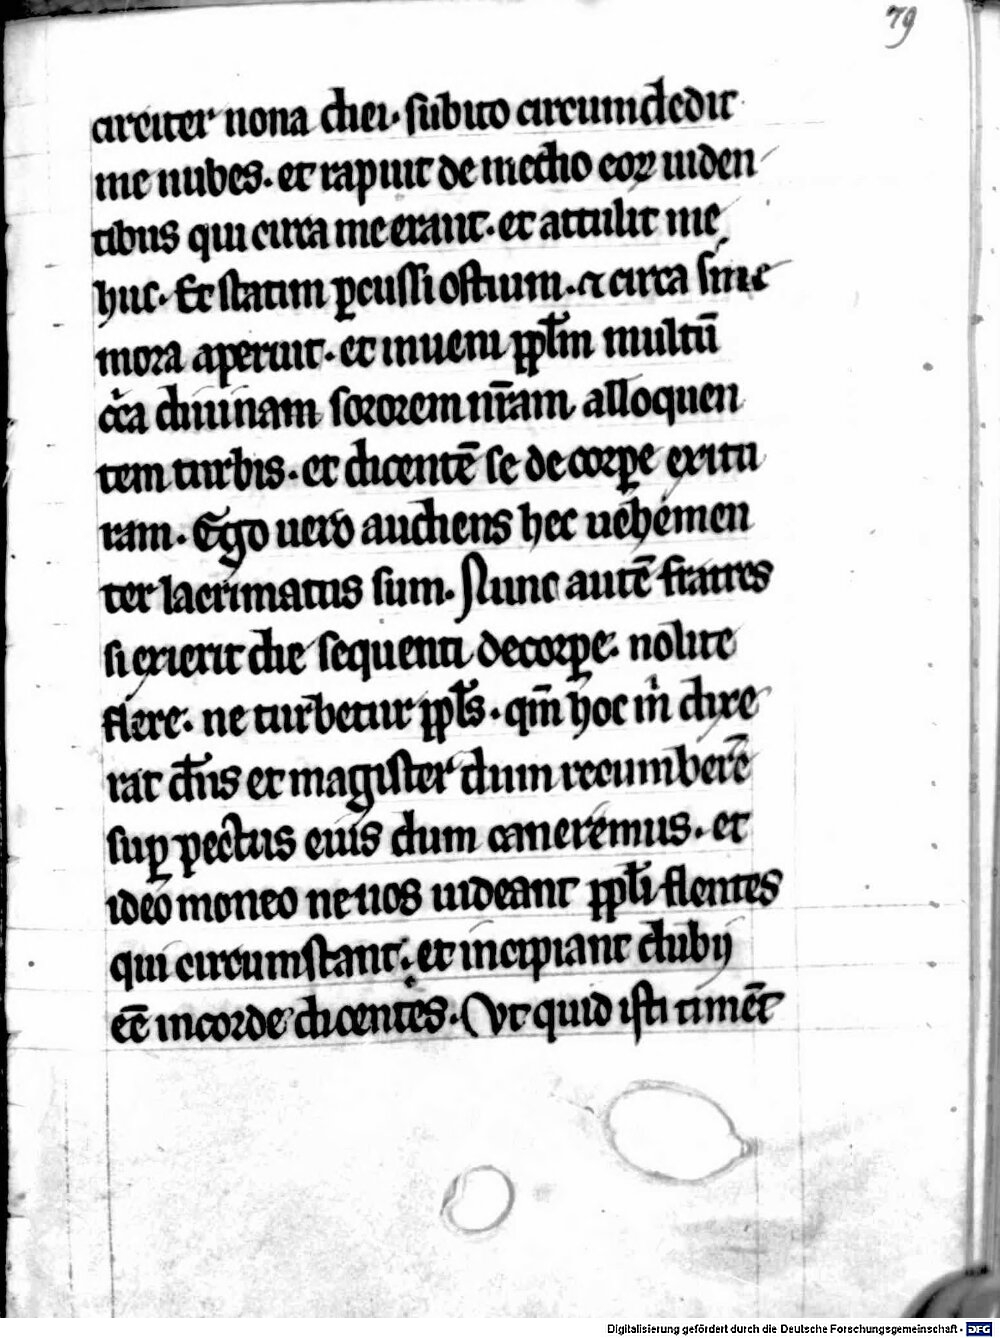 79
circiter nona diei. subito circumdedit
me nubes. et rapuit de medio eoꝝ uiden
tibus qui circa me erant. et attulit me
huc. Et statim ꝑcussi ostium. ⁊ circa sine
mora aperuit. et inueni pplm̄ multū
c̓ca diuinam sororem nr̄am alloquen
tem turbis. et dicentē se de corꝑe exitu
ram. Ego uero audiens hec uehemen
ter lacrimatus sum. Nunc autē fratres
si exierit die sequenti de corꝑe. nolite
flere. ne turbetur ppl̄s. qm̄ hoc m̓ dixe
rat dn̄s et magister dum recumberē
suꝑ pectus eius dum caneremus. et
ideo moneo ne uos uideant ppl̄i flentes
qui circumstant. et incipiant dubij
eē in corde dicentes. Vt quid isti timēt
Digitalisierung gefördert durch die Deutsche Forschungsgemeinschaft - DFG